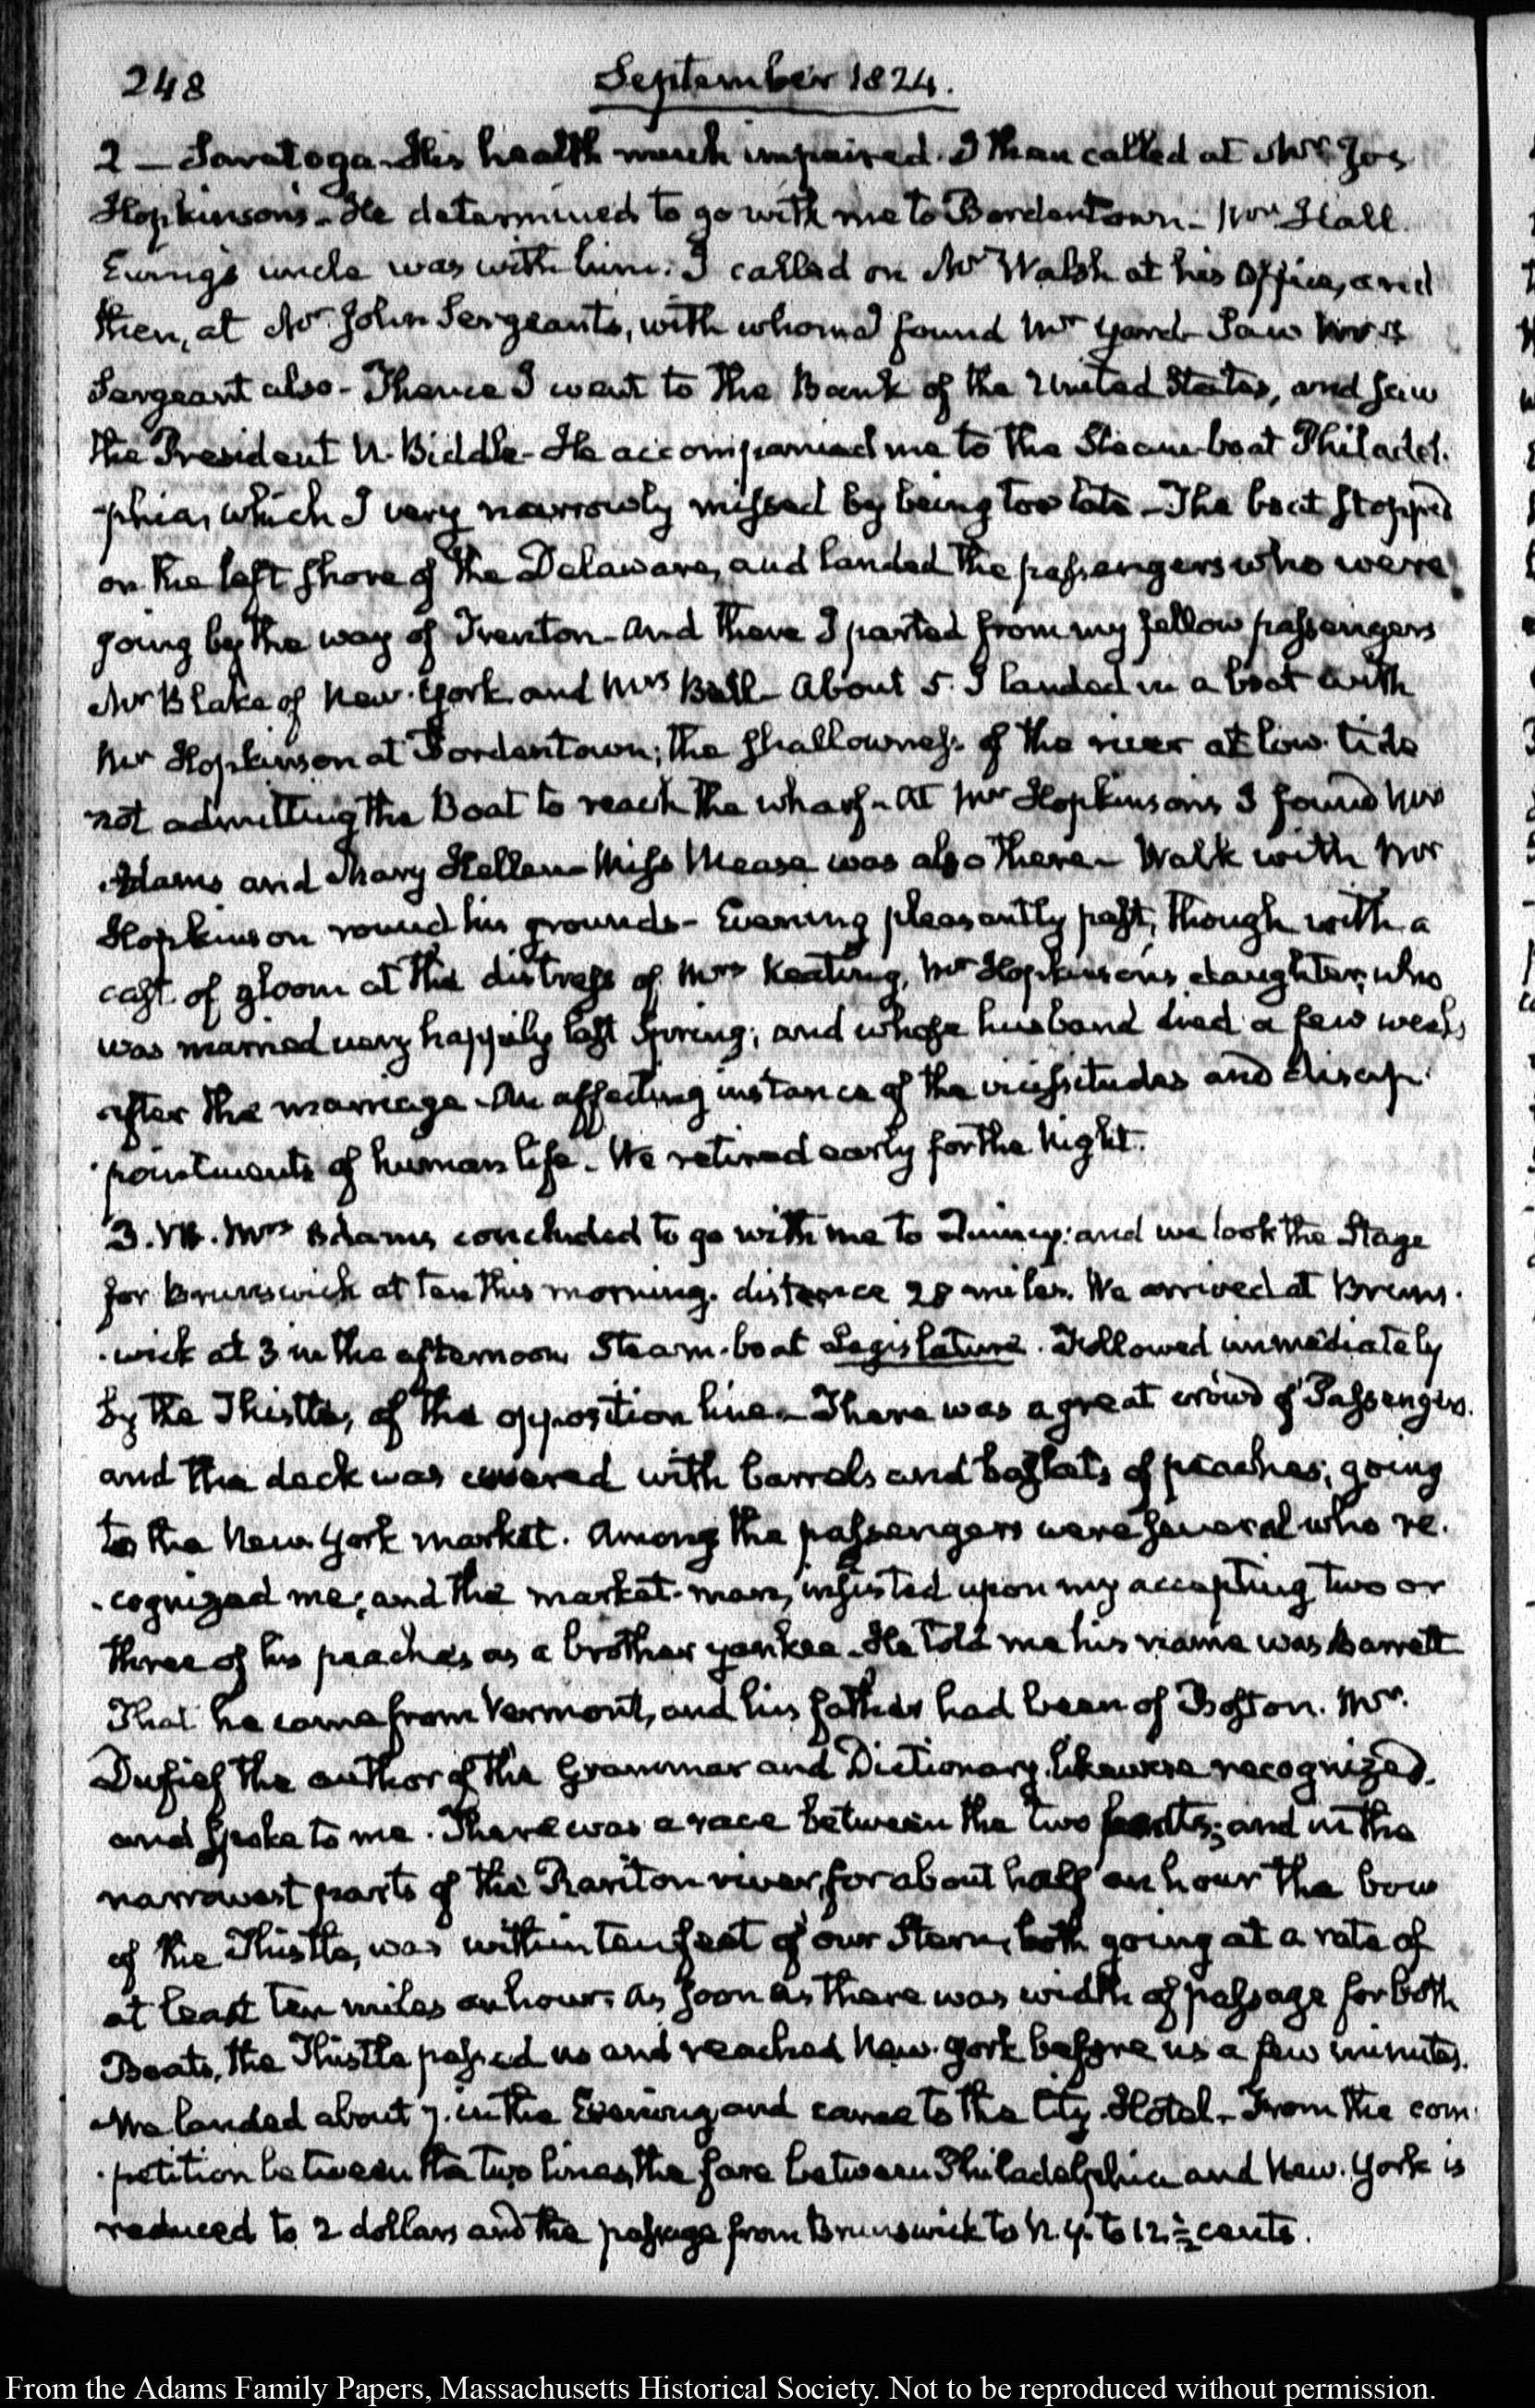 248
September 1824.
2 — Saratoga. His health much impaired. I then called at Mr. Jos
Hopkinson's. He determined to go with me to Bordentown. Mr. Hall
Ewing's uncle was with him. I called on Mr Walsh at his Office, and
then, at Mr John Sergeant's, with whom I found Mr Yard. Saw Mrs
Sergeant also. Thence I went to the Bank of the United States, and saw
the President N. Biddle. He accompanied me to the Steam-boat Philadel-
-phia, which I very narrowly missed by being too late. The boat stopped
on the left shore of the Delaware, and landed the passengers who were
going by the way of Trenton. And there I parted from my fellow passengers
Mr Blake of New-York and Mrs Ball. About 5. I landed in a boat with
Mr Hopkinson at Bordentown; the shallowness of the river at low-tide
not admitting the Boat to reach the wharf. At Mr Hopkinson's I found Mrs
Adams and Mary Hellen. Miss Mease was also there. Walk with Mr
Hopkinson round his grounds. Evening pleasantly past, though with a
cast of gloom at the distress of Mrs Keating, Mr Hopkinson's daughter, who
was married very happily last Spring; and whose husband died a few weeks
after the marriage. An affecting instance of the vicissitudes and disap-
-pointments of human life. We retired early for the Night.
3. VI. Mrs Adams concluded to go with me to Quincy: and we took the Stage
for Brunswick at ten this morning. distance 28 miles. We arrived at Bruns-
-wick at 3 in the afternoon Steam-boat Legislature. Followed immediately
by the Thistle, of the opposition line. There was a great crowd of Passengers.
and the deck was covered with barrels and baskets of peaches; going
to the New-York market. Among the passengers were several who re-
-cognized me; and the market-man, insisted upon my accepting two or
three of his peaches as a brother yankee. He told me his name was Barrett
That he came from Vermont, and his father had been of Boston. Mr.
Dufief the author of the Grammar and Dictionary likewise recognized,
and spoke to me. There was a race between the two boats; and in the
narrowest parts of the Rariton river, for about half an hour the bow
of the Thistle, was within ten feet of our Stern, both going at a rate of
at least ten miles an hour. As soon as there was width of passage for both
Boats, the Thistle passed us and reached New-York before us a few minutes.
We landed about 7. in the Evening and came to the City-Hotel. From the com-
-petition between the two lines, the fare between Philadelphia and New-York is
reduced to 2 dollars and the passage from Brunswick to N.Y. to 12 ½ cents.
From the Adams Family Papers, Massachusetts Historical Society. Not to be reproduced without permission.